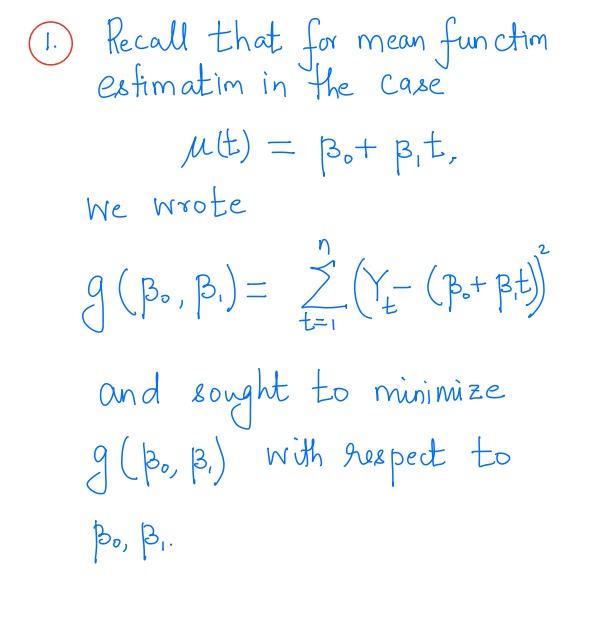 1. Recall that for mean function
estimation in the case
μ(t) = β₀ + β₁t,
we wrote
g(β₀, β₁) = ∑ₜ₌₁ⁿ (Yₜ - (β₀ + β₁t))²
and sought to minimize
g(β₀, β₁) with respect to
β₀, β₁.